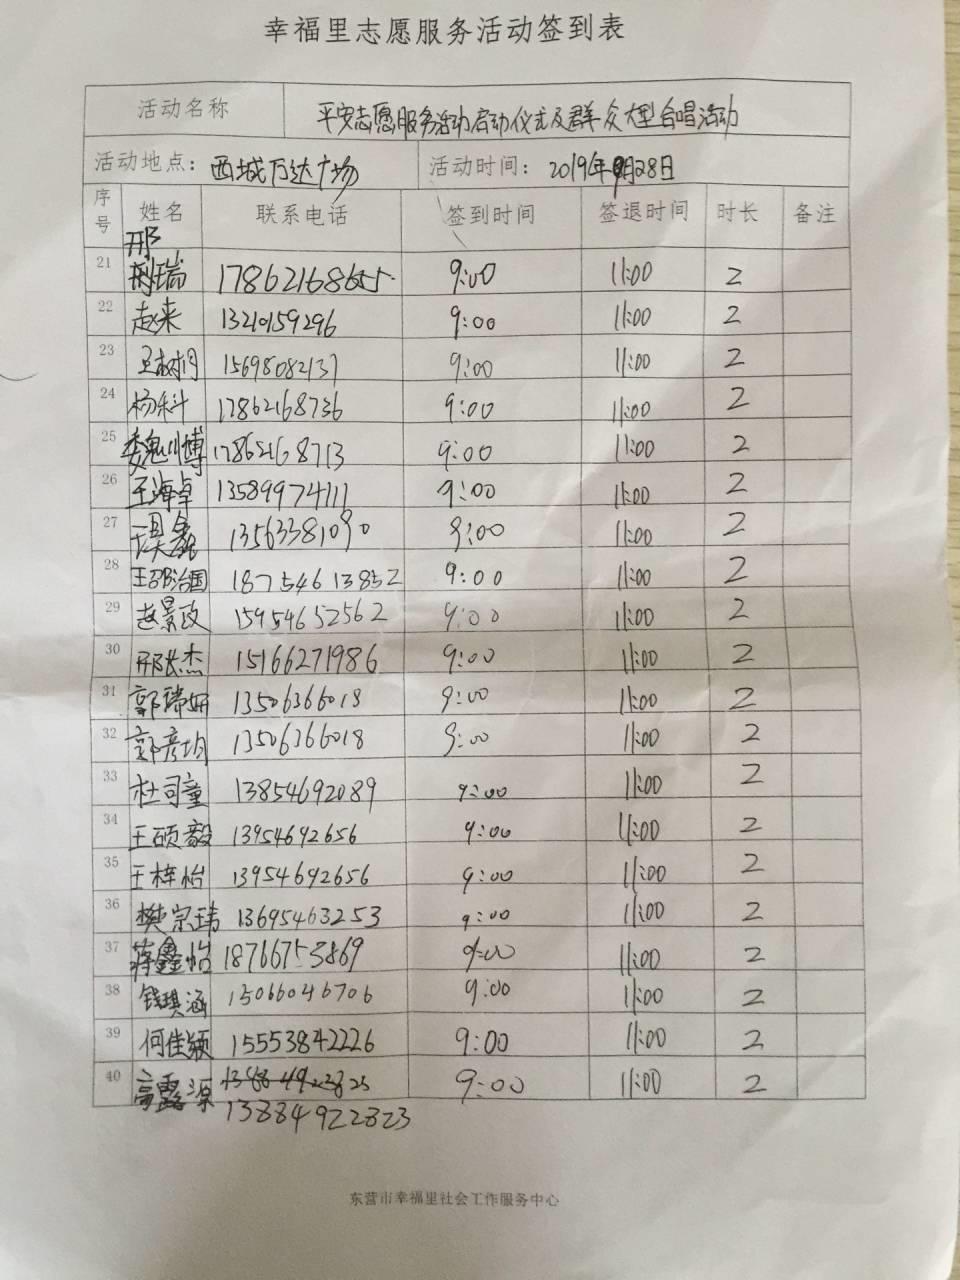 幸福里志愿服务活动签到表
活动名称 平安志愿服务活动启动仪式及群众大型合唱活动
活动地点：西城万达广场 活动时间：2019年9月28日
序号 姓名 联系电话 签到时间 签退时间 时长 备注
邢
21 荆瑞 17862168655 9:00 11:00 2
22 赵来 13210159296 9:00 11:00 2
23 15698082137 9:00 11:00 2
24 杨科 17862168736 9:00 11:00 2
25 魏川博 17862168713 9:00 11:00 2
26 王海卓 13589974111 9:00 11:00 2
27 13563381090 9:00 11:00 2
28 王邵治国 18754613852 9:00 11:00 2
29 赵景政 15954652562 9:00 11:00 2
30 邢长杰 15166271986 9:00 11:00 2
31 郭瑞妍 13506366018 9:00 11:00 2
32 郭彦均 13506366018 9:00 11:00 2
33 杜司童 13854692089 9:00 11:00 2
34 王硕毅 13954692656 9:00 11:00 2
35 王梓怡 13954692656 9:00 11:00 2
36 樊宗玮 13695463253 9:00 11:00 2
37 蒋鑫怡 18766753869 9:00 11:00 2
38 钱琪涵 15066046706 9:00 11:00 2
39 何佳颖 15553842226 9:00 11:00 2
40 高露源 9:00 11:00 2
13884922823
东营市幸福里社会工作服务中心